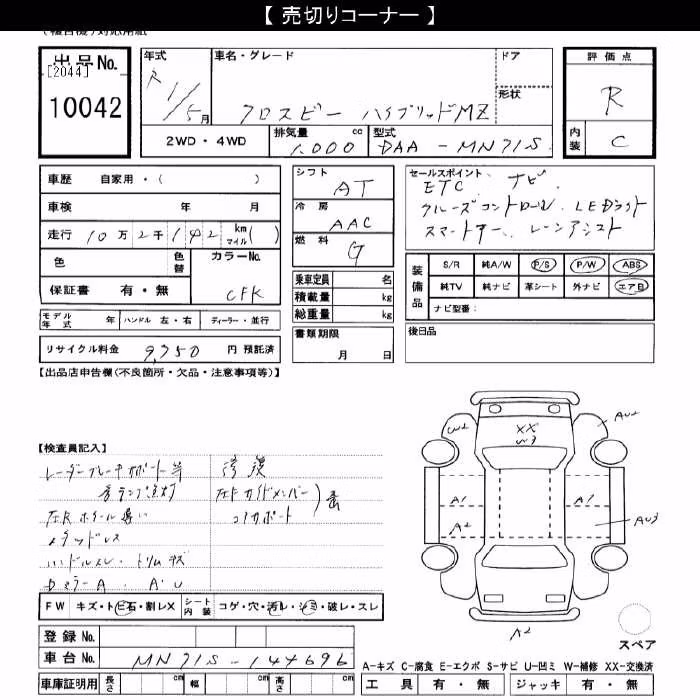 【 売切りコーナー 】
出品No.
[2044]
10042
年式
R1/5月
車名・グレード
クロスビー ハイブリッドMZ
ドア
形状
評価点
R
内装
C
2WD・4WD
排気量 cc
1.000
型式
DAA - MN71S
車歴 自家用・( )
車検 年 月
走行 10万2千142 km マイル( )
色 色替 カラーNo.
保証書 有・無 CFK
モデル年式 年 ハンドル 左・右 ディーラー・並行
リサイクル料金 9,750 円 預託済
【出品店申告欄(不良箇所・欠品・注意事項等)】
シフト
AT
冷房
AAC
燃料
G
乗車定員 名
積載量 kg
総重量 kg
書類期限
月 日
セールスポイント
ETC ナビ
クルーズコントロール LEDライト
スマートキー レーンアシスト
装備品
S/R 純A/W P/S P/W ABS
純TV 純ナビ 革シート 外ナビ エアB
ナビ型番:
後日品
【検査員記入】
レーダーブレーキサポート等
各ランプ点灯
左Rホイール違い
メタッドレス
ハンドルスレ・トリムキズ
DミラーA A・U
修複
左Fサイドメンバー
コアサポート
歪
W2
XX
W3
AU2
A1
A2
A1
AU3
A2
スペア
FW キズ・トビ石・割レX シート内装 コゲ・穴・汚レ・シミ・破レ・スレ
登録No.
車台No. MN71S-147696
車庫証明用 長さ cm 幅 cm 高さ cm
A-キズ C-腐食 E-エクボ S-サビ U-凹ミ W-補修 XX-交換済
工具 有・無 ジャッキ 有・無